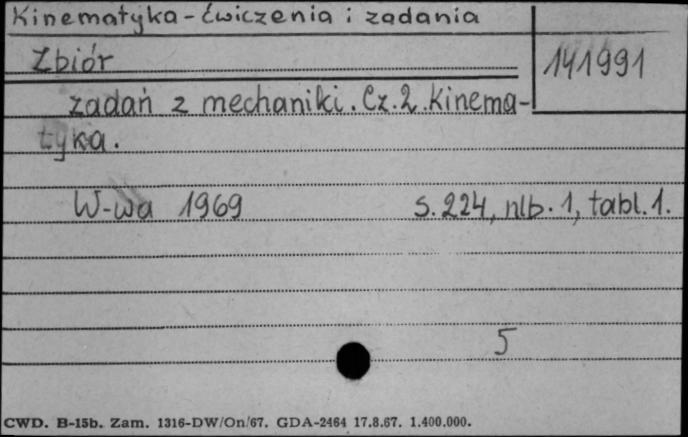 Kinematyka - ćwiczenia i zadania
Zbiór
141991
zadań z mechaniki. Cz. 2. Kinema-
tyka.
W-wa 1969 s. 224, nlb. 1, tabl. 1.
5
CWD. B-15b. Zam. 1316-DW/On/67. GDA-2464 17.8.67. 1.400.000.